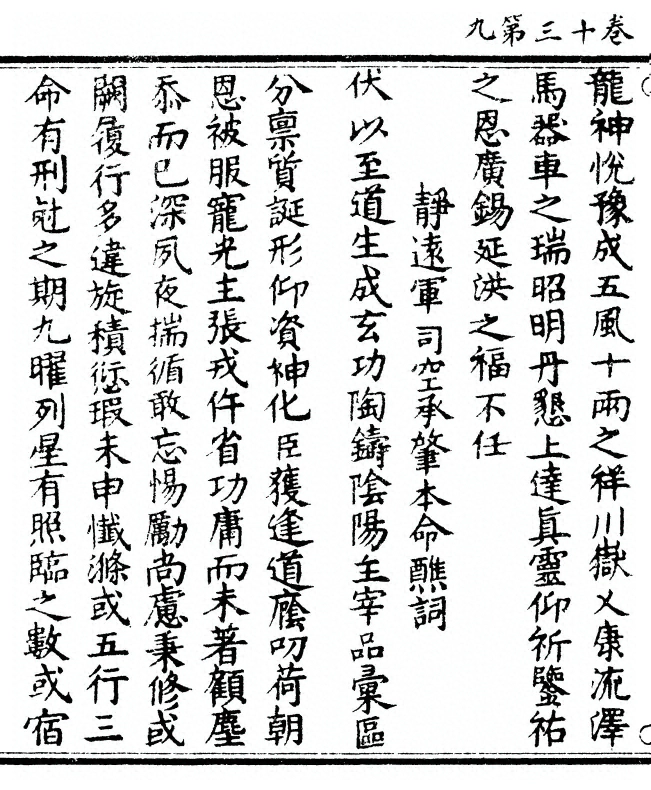 卷十三第九
龍神悅豫成五風十雨之祥川嶽乂康流澤
馬器車之瑞昭明丹懇上達眞靈仰祈鑒祐
之恩廣錫延洪之福不任
靜遠軍司空承肇本命醮詞
伏以至道生成玄功陶鑄陰陽主宰品彙區
分稟質誕形仰資神化臣獲逢道廕叨荷朝
恩被服寵光主張戎仵省功庸而未著顧塵
忝而已深夙夜揣循敢忘惕勵尚慮秉修或
闕履行多違旋積愆瑕未申懺滌或五行三
命有刑尅之期九曜列星有照臨之數或宿